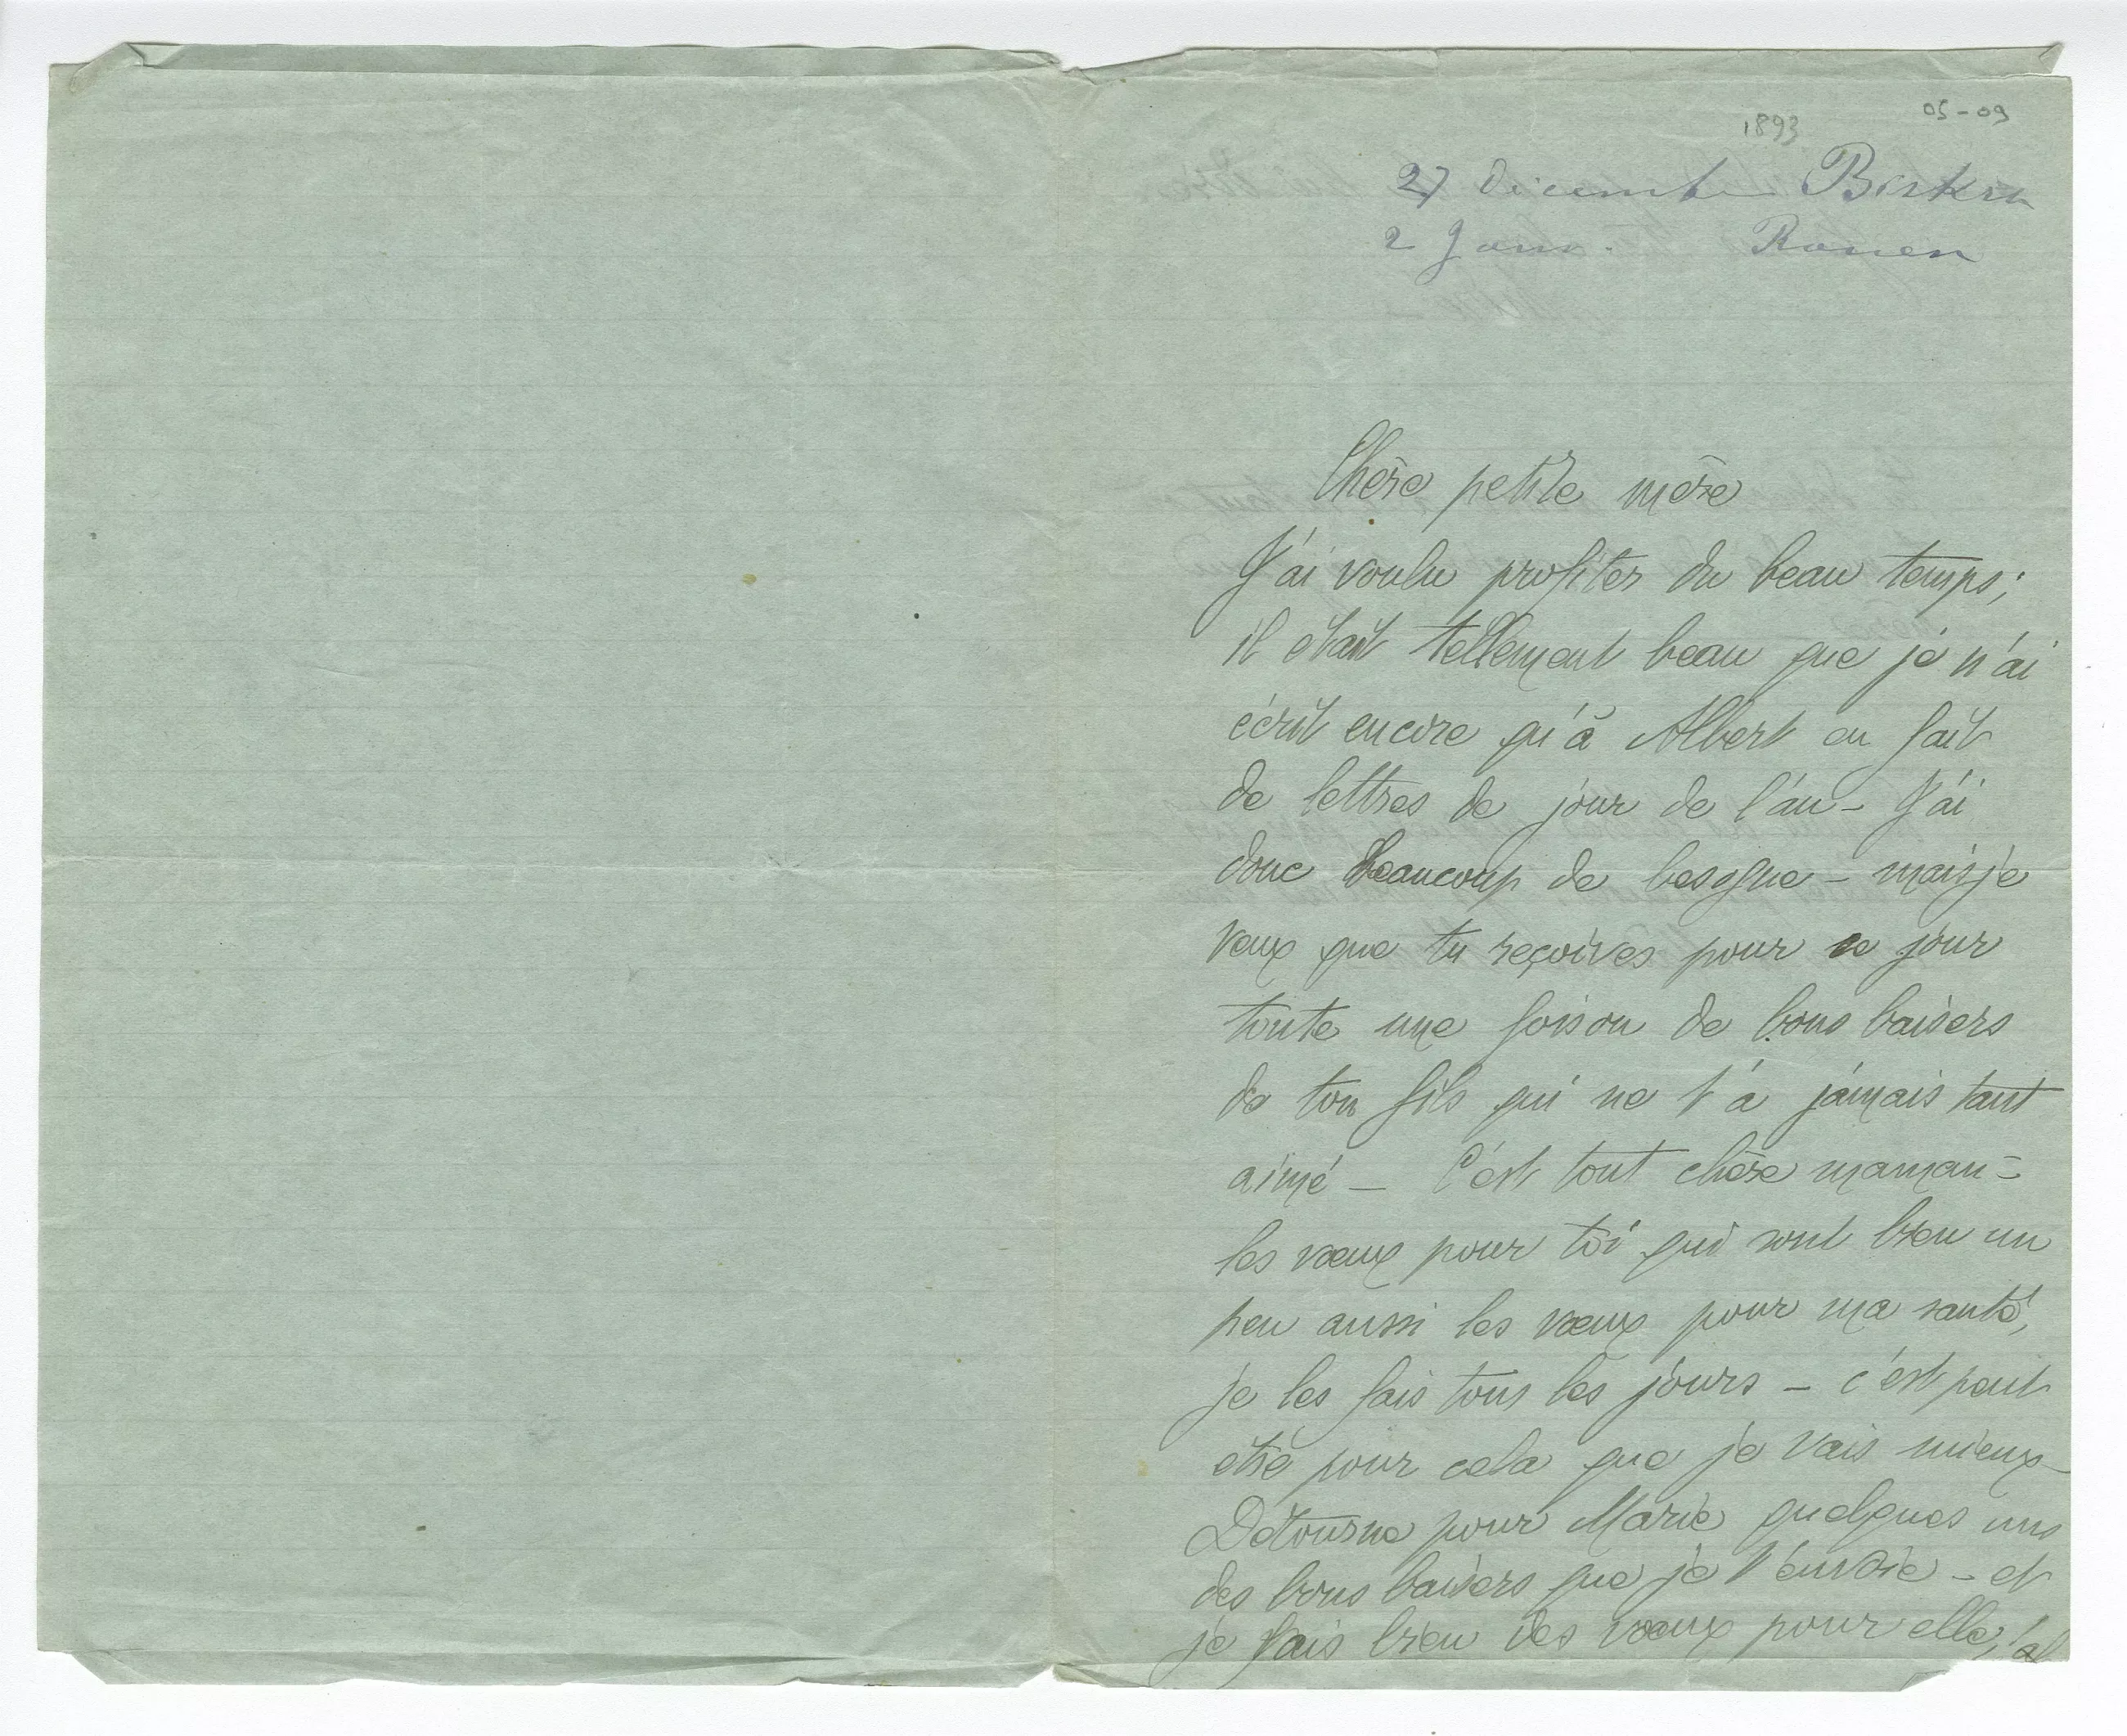 05-09
1893
27 Décembre Biskra
2 Janv. Rouen
Chère petite mère
J'ai voulu profiter du beau temps;
il était tellement beau que je n'ai
écrit encore qu'à Albert en fait
de lettres de jour de l'an - J'ai
donc beaucoup de besogne - mais je
veux que tu reçoives pour ce jour
toute une foison de bons baisers
de ton fils qui ne t'a jamais tant
aimé - C'est tout chère maman -
les vœux pour toi qui sont bien un
peu aussi les vœux pour ma santé,
je les fais tous les jours - c'est peut
être pour cela que je vais mieux -
Détourne pour Marie quelques uns
des bons baisers que je t'envoie - et
je fais bien des vœux pour elle,